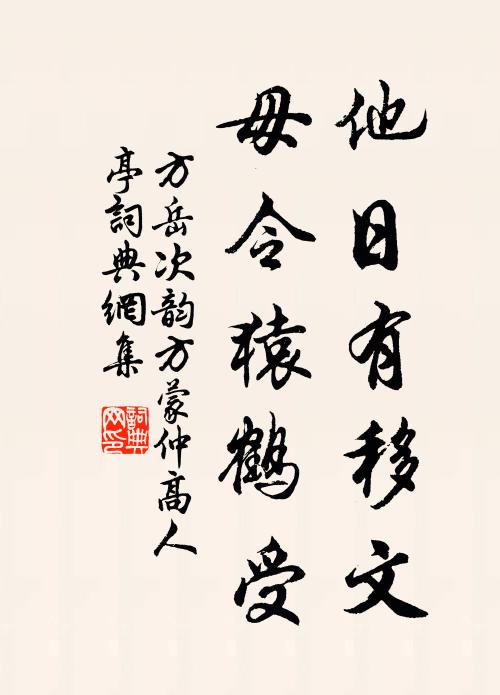 他日有移文
毋令猿鶴受
方岳次韵方蒙仲高人
亭詞典網集
詞典
网印